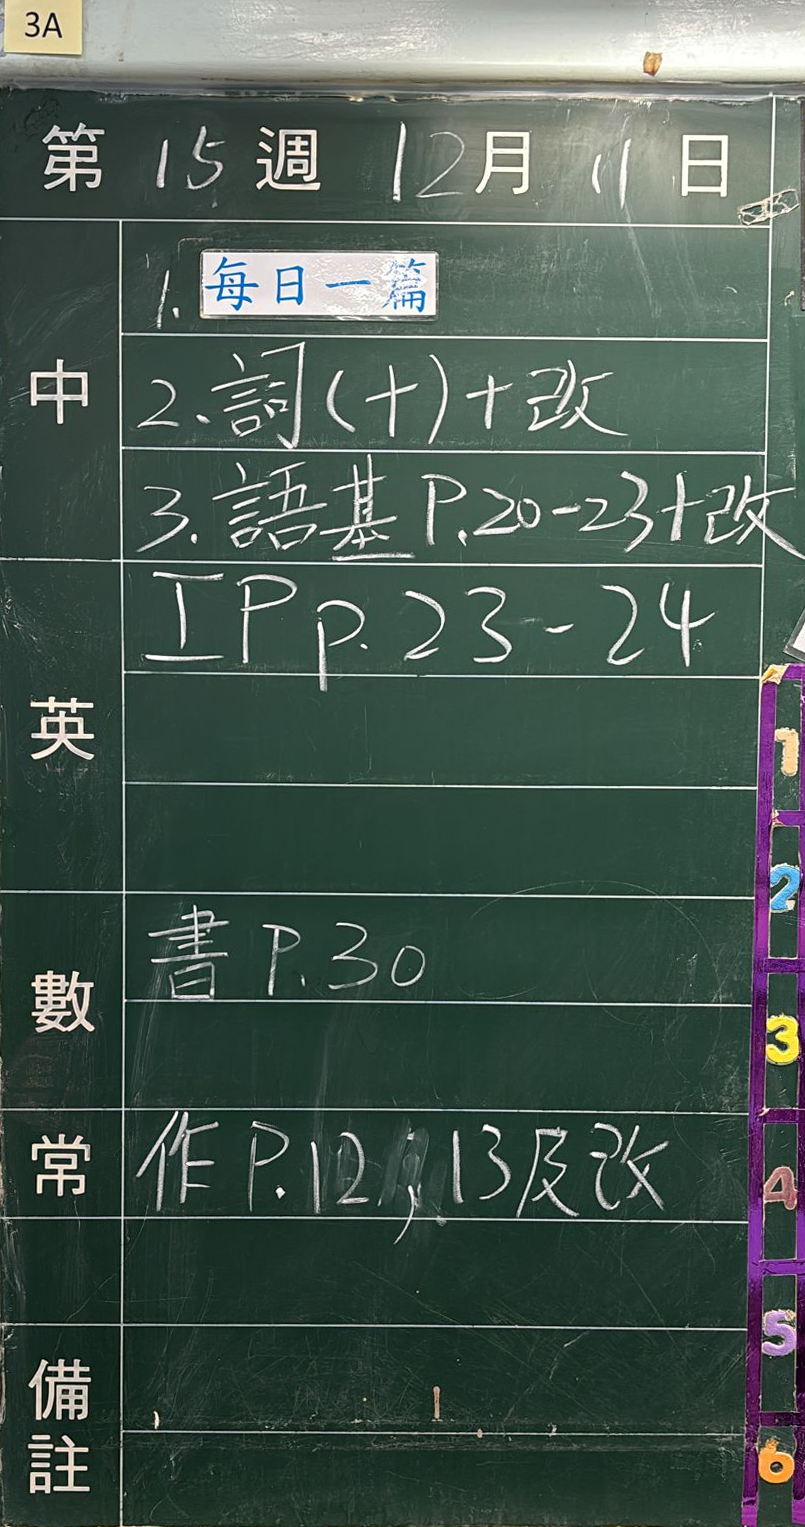 3A
第 15 週 12月 11 日
中
1. 每日一篇
2. 詞(十)+改
3. 語基 P.20-23+改
英
IP p. 23-24
數
書 P.30
常
作 P.12,13及改
備註
1
2
3
4
5
6